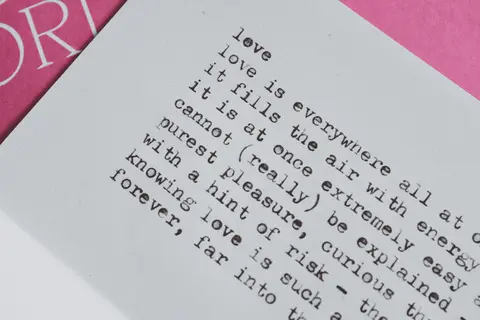 ORI
love
love is everywhere all at o
it fills the air with energy
it is at once extremely easy a
cannot (really) be explained –
purest pleasure, curious th
with a hint of risk – the
knowing love is such a
forever, far into th